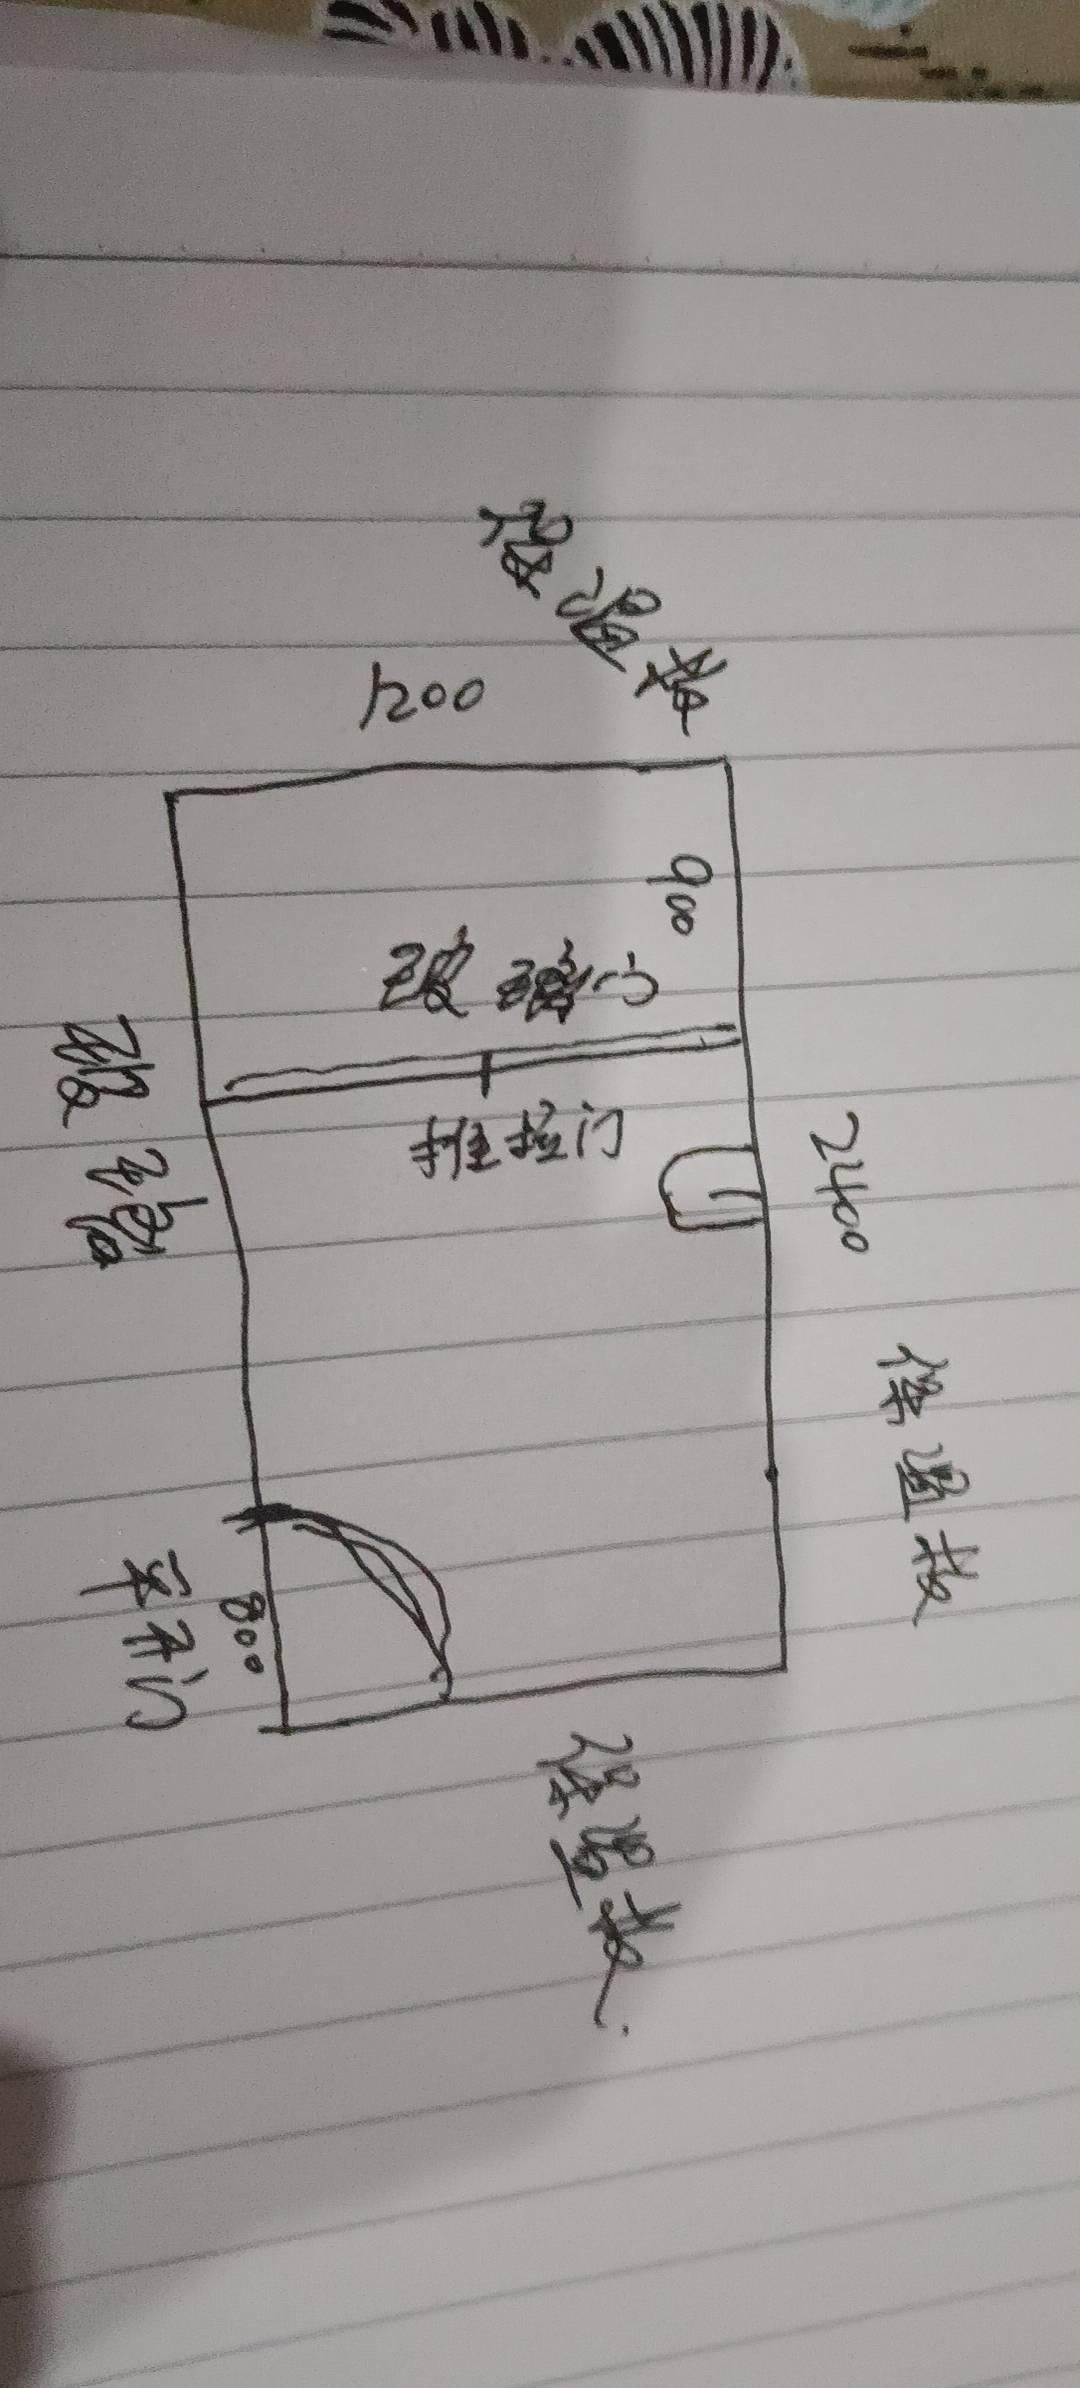 保温板
1200
900
玻璃门
推拉门
2400
保温板
玻璃
平开门
800
保温板